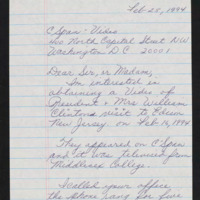 Feb 25, 1994
C Span: Video
400 North Capital Street N.W.
Washington D.C. 20001
Dear Sir, or Madam,
I'm interested in
obtaining a Video of
President & Mrs William
Clintons visit to Edison
New Jersey. on Feb 16, 1994
They appeared on C Span
and it was televised from
Middlesex College.
I called your office
the phone rang for five